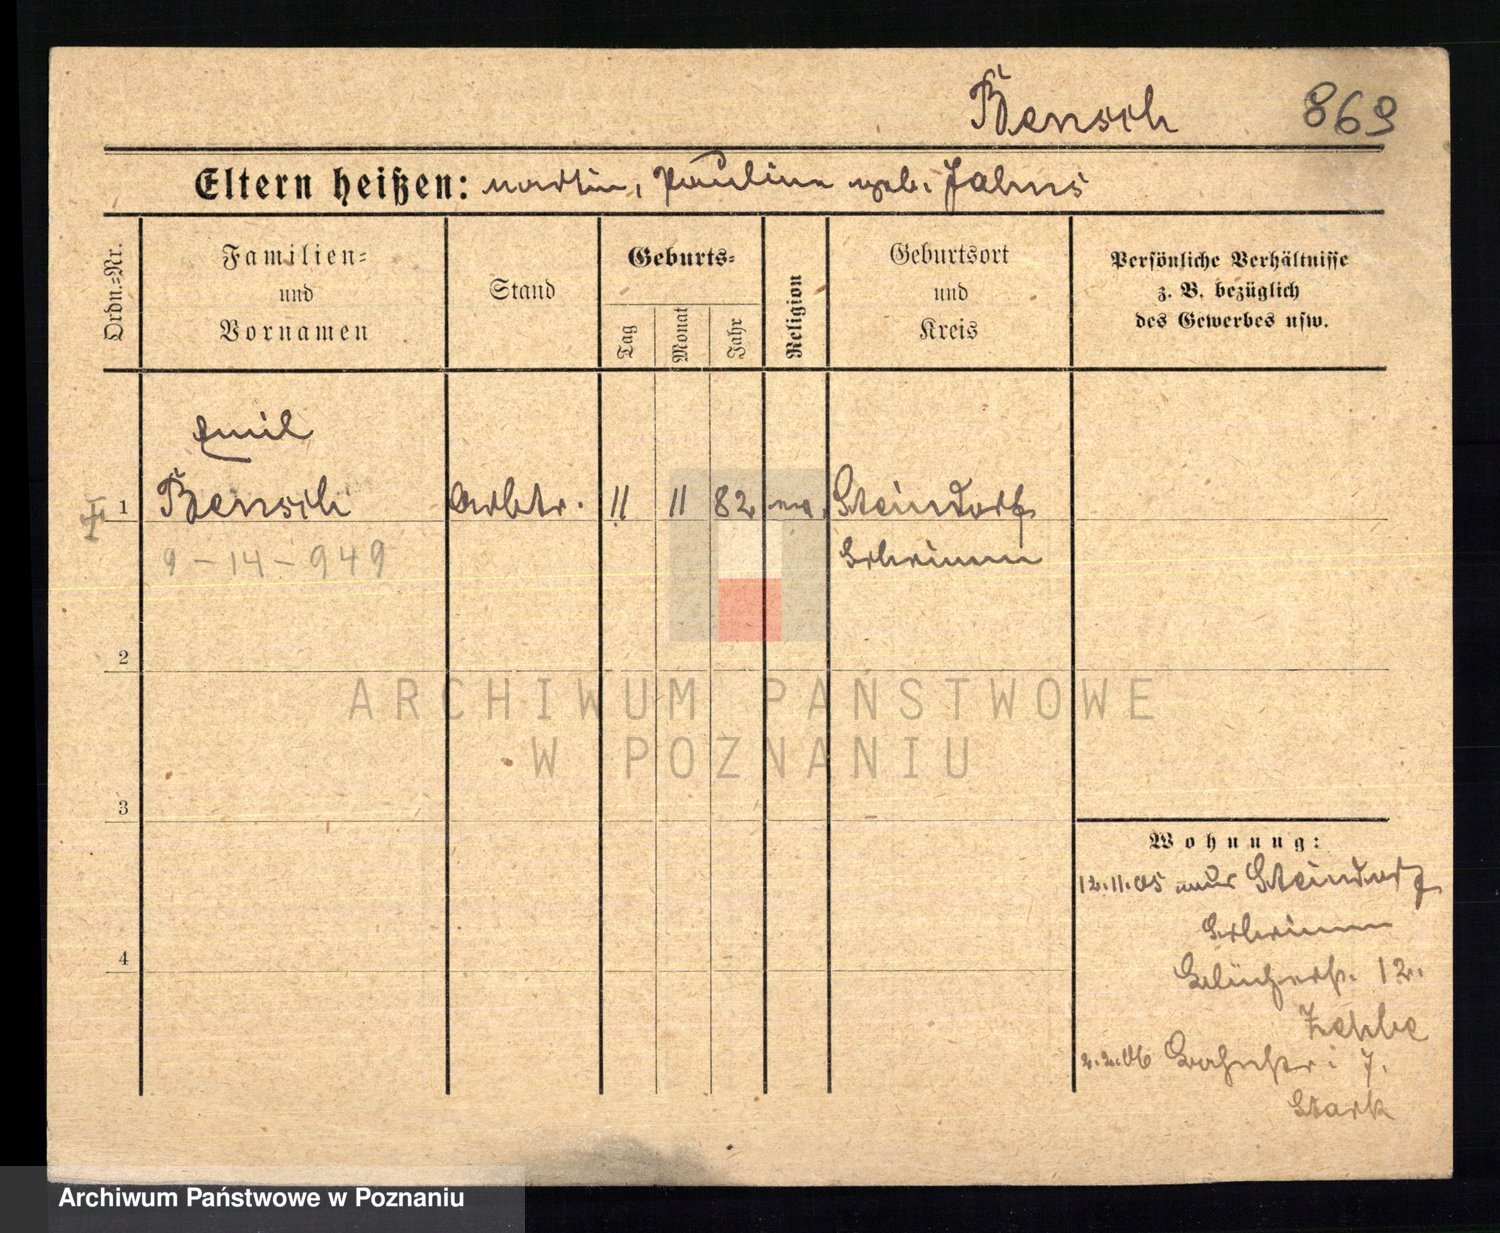 Bensch 869
Eltern heißen: Martin, Pauline geb. Jahns
Ordn.-Nr.
Familien-
und
Vornamen
Stand
Geburts-
Tag
Monat
Jahr
Religion
Geburtsort
und
Kreis
Persönliche Verhältnisse
z. B. bezüglich
des Gewerbes usw.
Emil
1 Bensch Arbtr. 11 11 82 ev. Steindorf
9-14-949 Schrimm
2
ARCHIWUM PAŃSTWOWE
W POZNANIU
3
Wohnung:
12.11.05 aus Steindorf
Schrimm
4
Blücherstr. 12.
2.2.06 7.
Stark
Archiwum Państwowe w Poznaniu